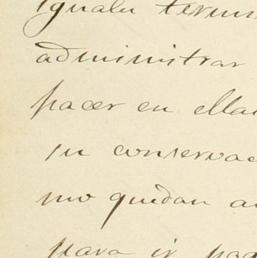 iguales termin
administrar
pacer en ella
su conservac
mo quedan a
para ir pag